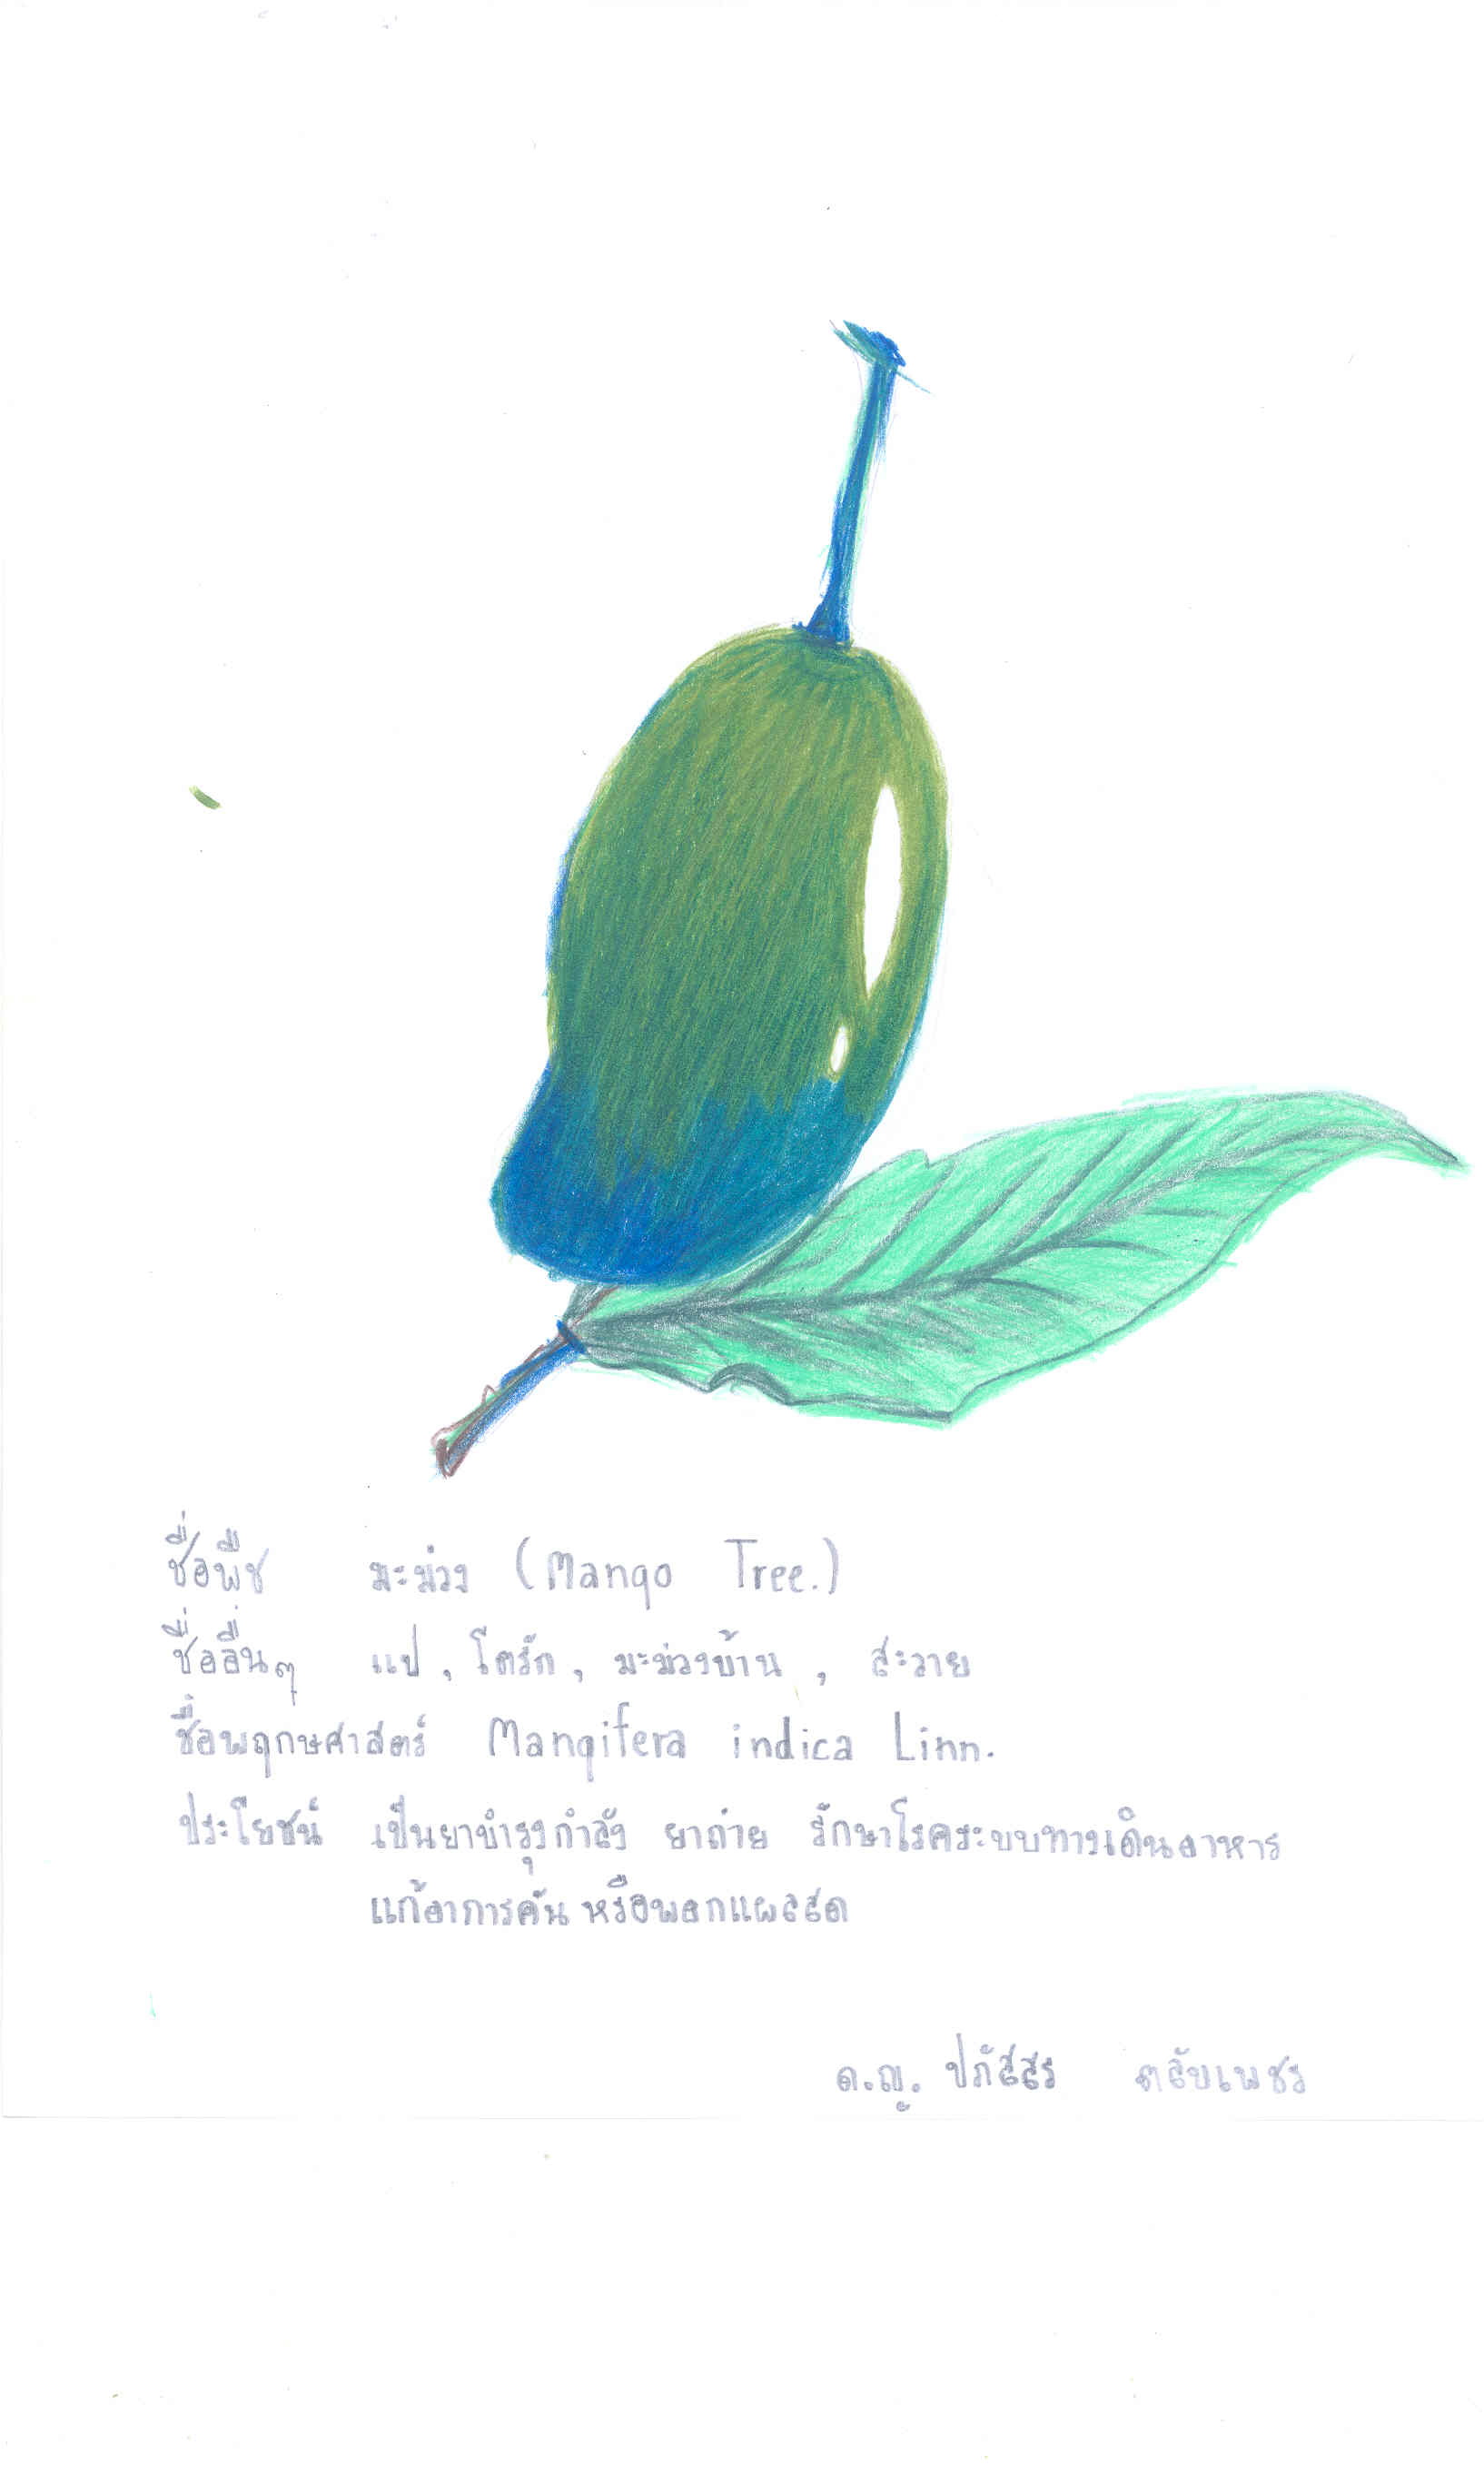 ชื่อพืช มะม่วง (Mango Tree.)
ชื่ออื่นๆ แป , โตรัก , มะม่วงบ้าน , สะวาย
ชื่อพฤกษศาสตร์ Mangifera indica Linn.
ประโยชน์ เป็นยาบำรุงกำลัง ยาถ่าย รักษาโรคระบบทางเดินอาหาร
แก้อาการคัน หรือพอกแผลสด
ด.ญ. ปภัสสร ตลับเพชร